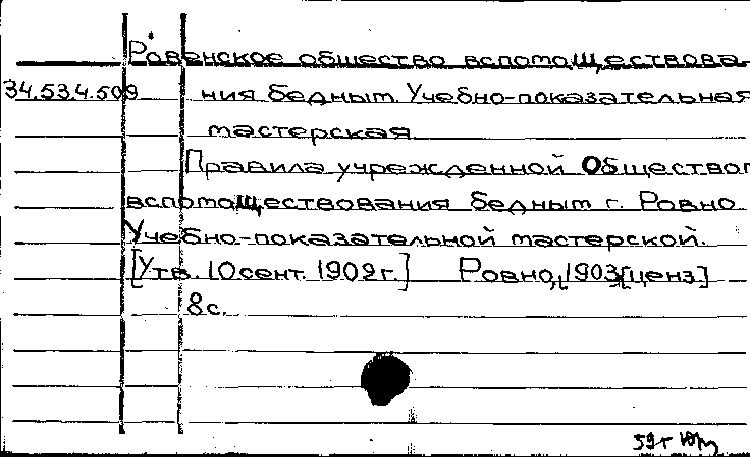 Ровенское общество вспомоществова-
34.53.4.509 ния бедным. Учебно-показательная
мастерская
Правила учрежденной Обществом
вспомоществования бедным г. Ровно
Учебно-показательной мастерской.
[Утв. 10 сент. 1902г.] Ровно, 1903 [ценз]
8с.
59т